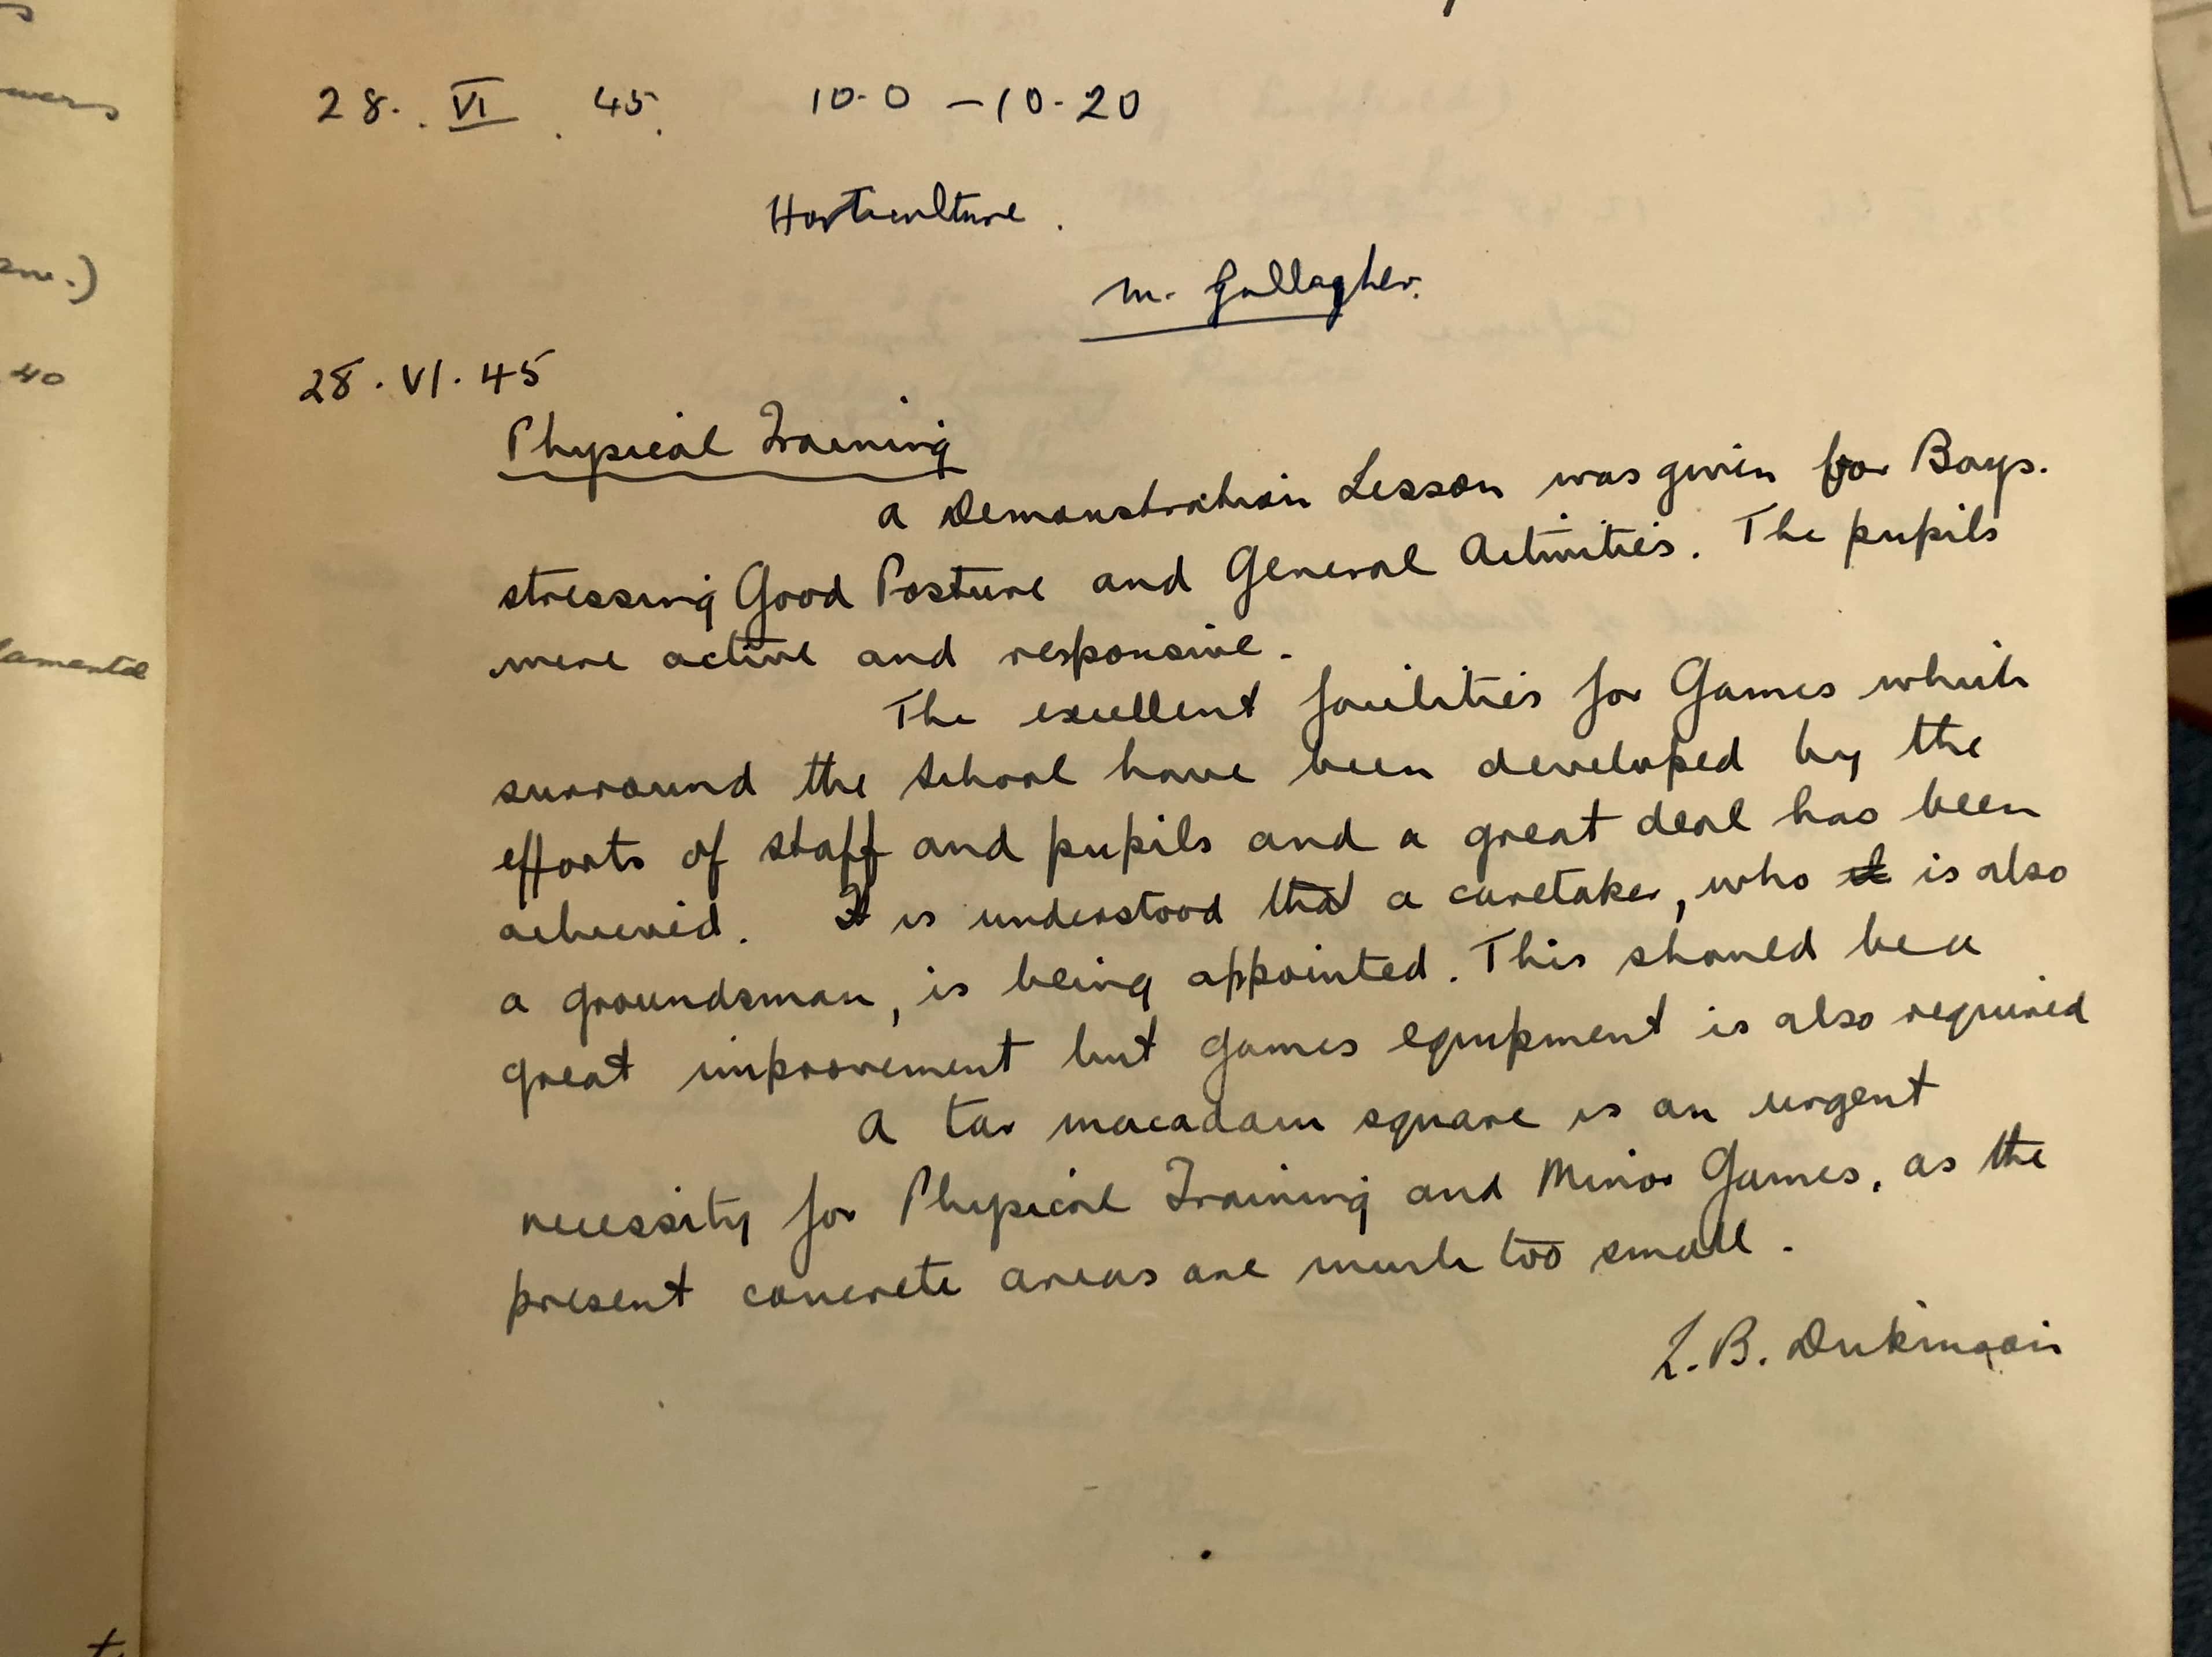 28. VI. 45. 10.0 – 10.20
Horticulture.
M. Gallagher.
28.VI.45
Physical Training
A Demonstration Lesson was given for Boys.
stressing Good Posture and General Activities. The pupils
were active and responsive.
The excellent facilities for Games which
surround the School have been developed by the
efforts of staff and pupils and a great deal has been
achieved. It is understood that a caretaker, who is also
a groundsman, is being appointed. This should be a
great improvement but games equipment is also required
A tar macadam square is an urgent
necessity for Physical Training and Minor Games, as the
present concrete areas are much too small.
L.B.
40